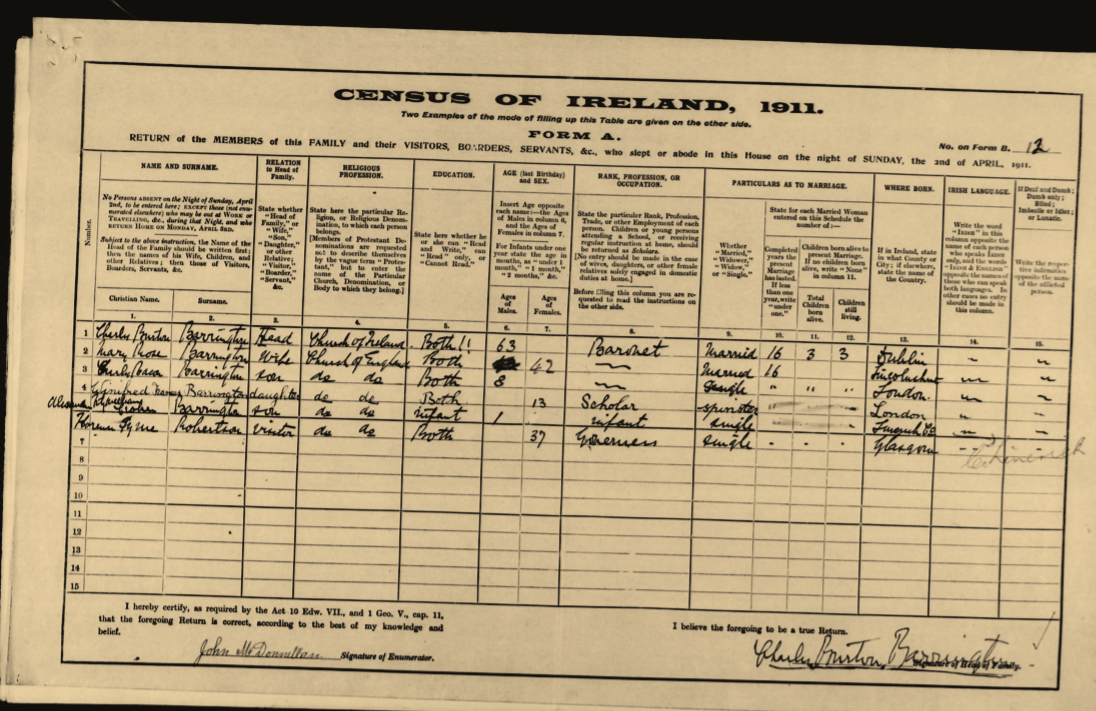 CENSUS OF IRELAND, 1911.
Two Examples of the mode of filling up this Table are given on the other side.
FORM A.
No. on Form B. 12
RETURN of the MEMBERS of this FAMILY and their VISITORS, BOARDERS, SERVANTS, &c., who slept or abode in this House on the night of SUNDAY, the 2nd of APRIL, 1911.
Number.
NAME AND SURNAME.
No Persons ABSENT on the Night of Sunday, April 2nd, to be entered here; EXCEPT those (not enumerated elsewhere) who may be out at WORK or TRAVELLING, &c., during that Night, and who RETURN HOME ON MONDAY, APRIL 3RD.
Subject to the above instruction, the Name of the Head of the Family should be written first; then the names of his Wife, Children, and other Relatives; then those of Visitors, Boarders, Servants, &c.
Christian Name. Surname.
RELATION to Head of Family.
State whether "Head of Family," or "Wife," "Son," "Daughter," or other Relative; "Visitor," "Boarder," "Servant," &c.
RELIGIOUS PROFESSION.
State here the particular Religion, or Religious Denomination, to which each person belongs.
[Members of Protestant Denominations are requested not to describe themselves by the vague term "Protestant," but to enter the name of the Particular Church, Denomination, or Body to which they belong.]
EDUCATION.
State here whether he or she can "Read and Write," can "Read" only, or "Cannot Read."
AGE (last Birthday) and SEX.
Insert Age opposite each name:—the Ages of Males in column 6, and the Ages of Females in column 7.
For Infants under one year state the age in months, as "under 1 month," "1 month," "2 months," &c.
Ages of Males. Ages of Females.
RANK, PROFESSION, OR OCCUPATION.
State the particular Rank, Profession, Trade, or other Employment of each person. Children or young persons attending a School, or receiving regular instruction at home, should be returned as Scholars.
[No entry should be made in the case of wives, daughters, or other female relatives solely engaged in domestic duties at home.]
Before filling this column you are requested to read the instructions on the other side.
PARTICULARS AS TO MARRIAGE.
Whether "Married," "Widower," "Widow," or "Single."
State for each Married Woman entered on this Schedule the number of:—
Completed years the present Marriage has lasted. If less than one year, write "under one."
Children born alive to present Marriage. If no children born alive, write "None" in column 11.
Total Children born alive. Children still living.
WHERE BORN.
If in Ireland, state in what County or City; if elsewhere, state the name of the Country.
IRISH LANGUAGE.
Write the word "IRISH" in this column opposite the name of each person who speaks IRISH only, and the words "IRISH & ENGLISH" opposite the names of those who can speak both languages. In other cases no entry should be made in this column.
If Deaf and Dumb; Dumb only; Blind; Imbecile or Idiot; or Lunatic.
Write the respective infirmities opposite the name of the afflicted person.
1. 2. 3. 4. 5. 6. 7. 8. 9. 10. 11. 12. 13. 14. 15.
1 Charles Burton Barrington Head Church of Ireland Both!! 63 Baronet Married 16 3 3 Dublin
2 Mary Rose Barrington Wife Church of England Both 42 Married 16
3 Barrington son do do Both 8 Single London
4 Winifred Frances Barrington daughter do do Both 13 Scholar spinster London
Alexander Barrington son do do infant 1 infant single Limerick Co
Florence Robertson visitor do do Both 37 Governess single Glasgow
7
8
9
10
11
12
13
14
15
I hereby certify, as required by the Act 10 Edw. VII., and 1 Geo. V., cap. 11,
that the foregoing Return is correct, according to the best of my knowledge and
belief.
John McDonnellan Signature of Enumerator.
I believe the foregoing to be a true Return.
Charles Burton Barrington